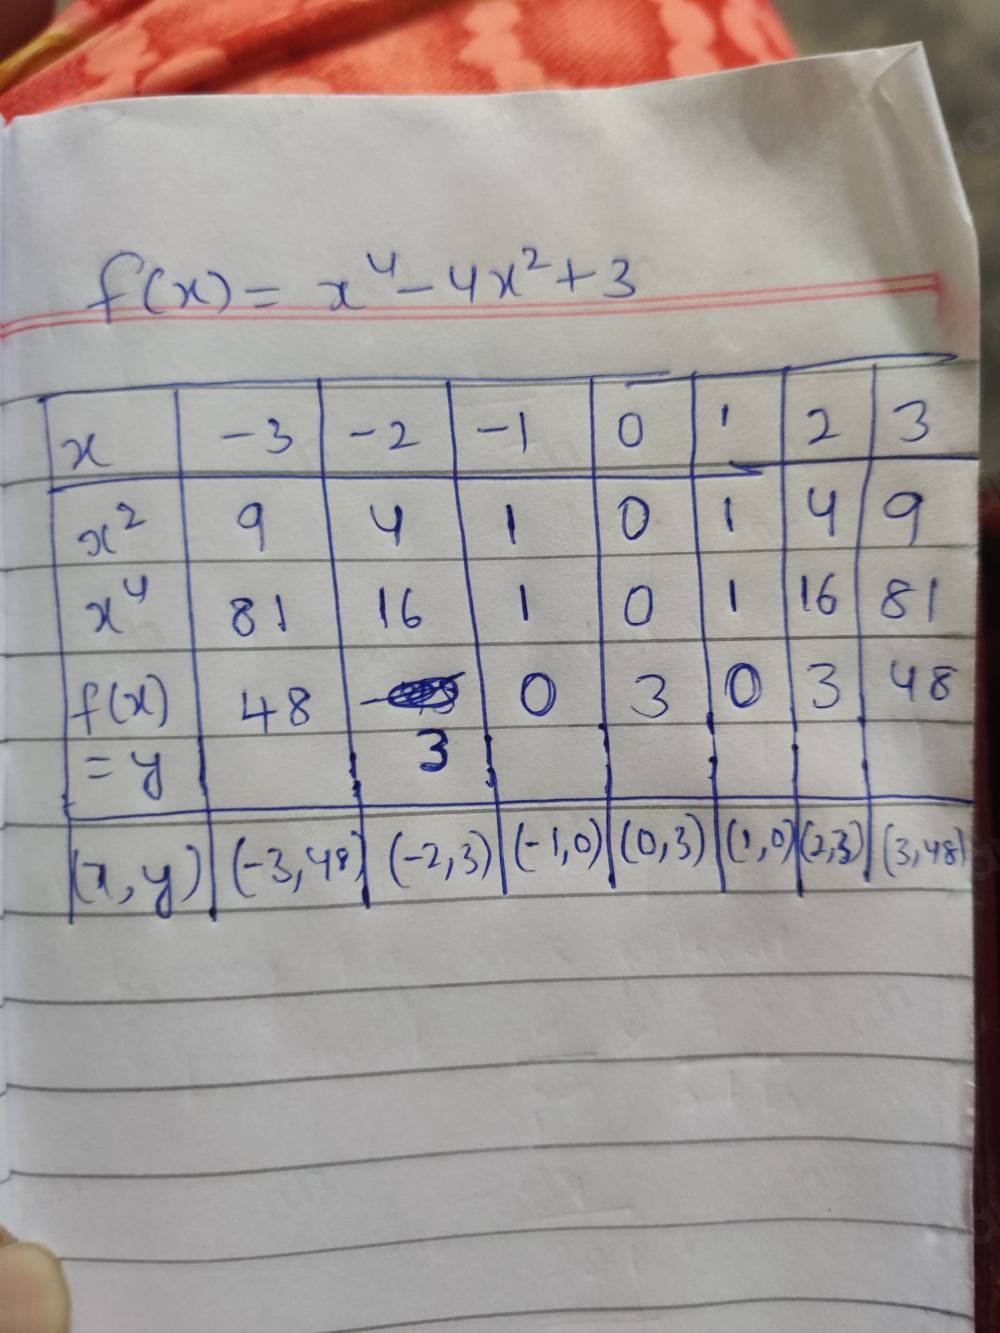 f(x) = x⁴ - 4x² + 3
x -3 -2 -1 0 1 2 3
x² 9 4 1 0 1 4 9
x⁴ 81 16 1 0 1 16 81
f(x) 48 0 3 0 3 48
= y 3
(x, y) (-3, 48) (-2, 3) (-1, 0) (0, 3) (1, 0) (2, 3) (3, 48)